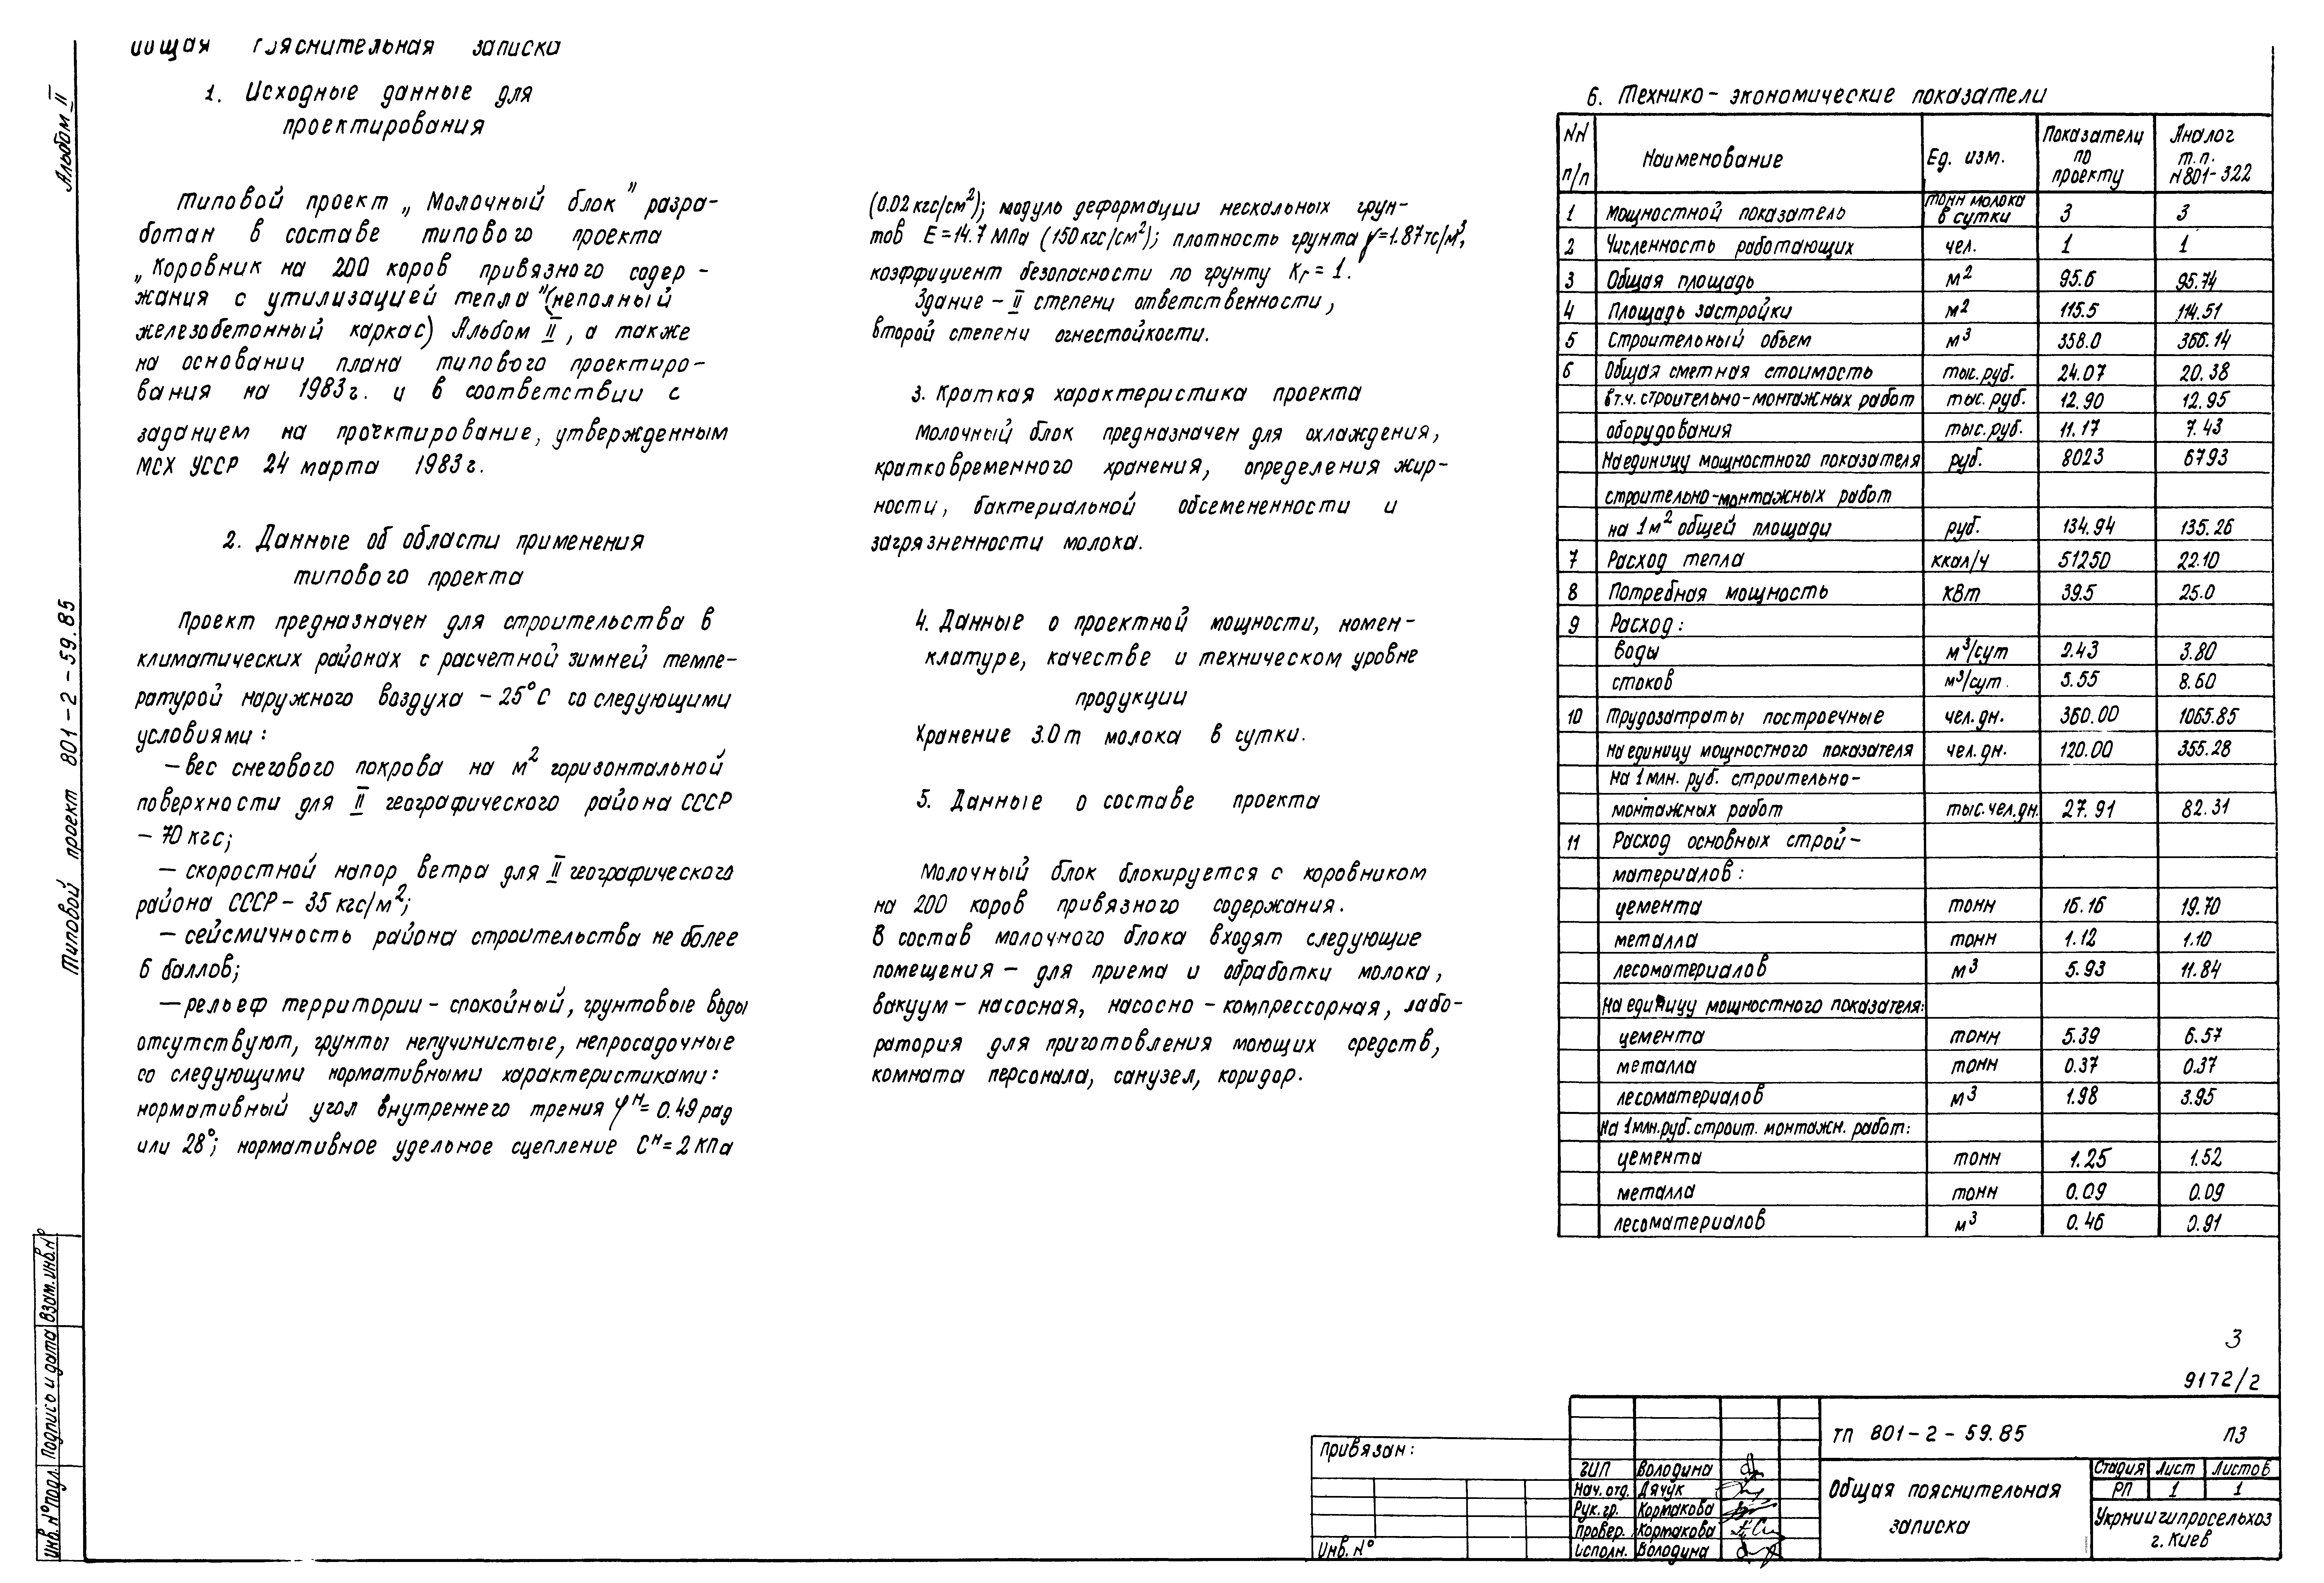 Общая пояснительная записка
1. Исходные данные для
проектирования
Типовой проект „Молочный блок" разра-
ботан в составе типового проекта
„Коровник на 200 коров привязного содер-
жания с утилизацией тепла" (неполный
железобетонный каркас) Альбом II, а также
на основании плана типового проектиро-
вания на 1983г. и в соответствии с
заданием на проектирование, утвержденным
МСХ УССР 24 марта 1983г.
2. Данные об области применения
типового проекта
Проект предназначен для строительства в
климатических районах с расчетной зимней темпе-
ратурой наружного воздуха -25°С со следующими
условиями:
- вес снегового покрова на м² горизонтальной
поверхности для II географического района СССР
- 70 кгс;
- скоростной напор ветра для II географического
района СССР - 35 кгс/м²;
- сейсмичность района строительства не более
6 баллов;
- рельеф территории - спокойный, грунтовые воды
отсутствуют, грунты непучинистые, непросадочные
со следующими нормативными характеристиками:
нормативный угол внутреннего трения φᴴ= 0.49 рад
или 28°; нормативное удельное сцепление Сᴴ= 2 КПа
(0.02 кгс/см²); модуль деформации нескальных грун-
тов Е=14.7 МПа (150 кгс/см²); плотность грунта γ=1.87тс/м³,
коэффициент безопасности по грунту Кг = 1.
Здание - II степени ответственности,
второй степени огнестойкости.
3. Краткая характеристика проекта
Молочный блок предназначен для охлаждения,
кратковременного хранения, определения жир-
ности, бактериальной обсемененности и
загрязненности молока.
4. Данные о проектной мощности, номен-
клатуре, качестве и техническом уровне
продукции
Хранение 3.0т молока в сутки.
5. Данные о составе проекта
Молочный блок блокируется с коровником
на 200 коров привязного содержания.
В состав молочного блока входят следующие
помещения - для приема и обработки молока,
вакуум-насосная, насосно-компрессорная, лабо-
ратория для приготовления моющих средств,
комната персонала, санузел, коридор.
6. Технико-экономические показатели
NN п/п Наименование Ед. изм. Показатели по проекту Аналог т.п. N801-322
1 Мощностной показатель тонн молока в сутки 3 3
2 Численность работающих чел. 1 1
3 Общая площадь м² 95.6 95.74
4 Площадь застройки м² 115.5 114.51
5 Строительный объем м³ 358.0 366.14
6 Общая сметная стоимость тыс.руб. 24.07 20.38
в т.ч. строительно-монтажных работ тыс.руб. 12.90 12.95
оборудования тыс.руб. 11.17 7.43
На единицу мощностного показателя руб. 8023 6793
строительно-монтажных работ
на 1м² общей площади руб. 134.94 135.26
7 Расход тепла ккал/ч 51250 22.10
8 Потребная мощность кВт 39.5 25.0
9 Расход:
воды м³/сут 2.43 3.80
стоков м³/сут. 5.55 8.60
10 Трудозатраты построечные чел.дн. 360.00 1065.85
на единицу мощностного показателя чел.дн. 120.00 355.28
на 1 млн. руб. строительно-
монтажных работ тыс.чел.дн. 27.91 82.31
11 Расход основных строй-
материалов:
цемента тонн 16.16 19.70
металла тонн 1.12 1.10
лесоматериалов м³ 5.93 11.84
На единицу мощностного показателя:
цемента тонн 5.39 6.57
металла тонн 0.37 0.37
лесоматериалов м³ 1.98 3.95
На 1млн.руб.строит. монтажн. работ:
цемента тонн 1.25 1.52
металла тонн 0.09 0.09
лесоматериалов м³ 0.46 0.91
Альбом II
Типовой проект 801-2-59.85
Взам.инв.N°
Подпись и дата
Инв.N°подл.
3
9172/2
Привязан:
Инв. N°
ГИП Володина
Нач.отд. Дячук
Рук.гр. Кормакова
Провер. Кормакова
Исполн. Володина
ТП 801-2-59.85 ПЗ
Общая пояснительная
записка
Стадия Лист Листов
РП 1 1
Укрниигипросельхоз
г. Киев